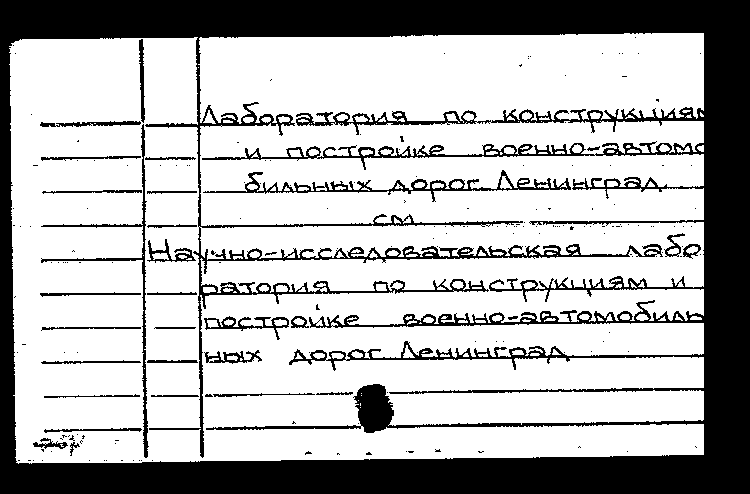 Лаборатория по конструкциям
и постройке военно-автомо
бильных дорог. Ленинград.
см.
Научно-исследовательская лабо
ратория по конструкциям и
постройке военно-автомобиль
ных дорог Ленинград